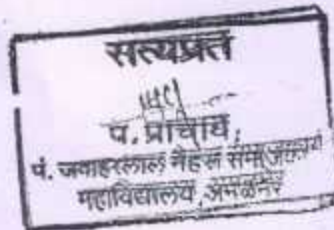 सत्यप्रत
प. प्राचार्य,
पं. जवाहरलाल नेहरू समाजकार्य
महाविद्यालय, अमळनेर